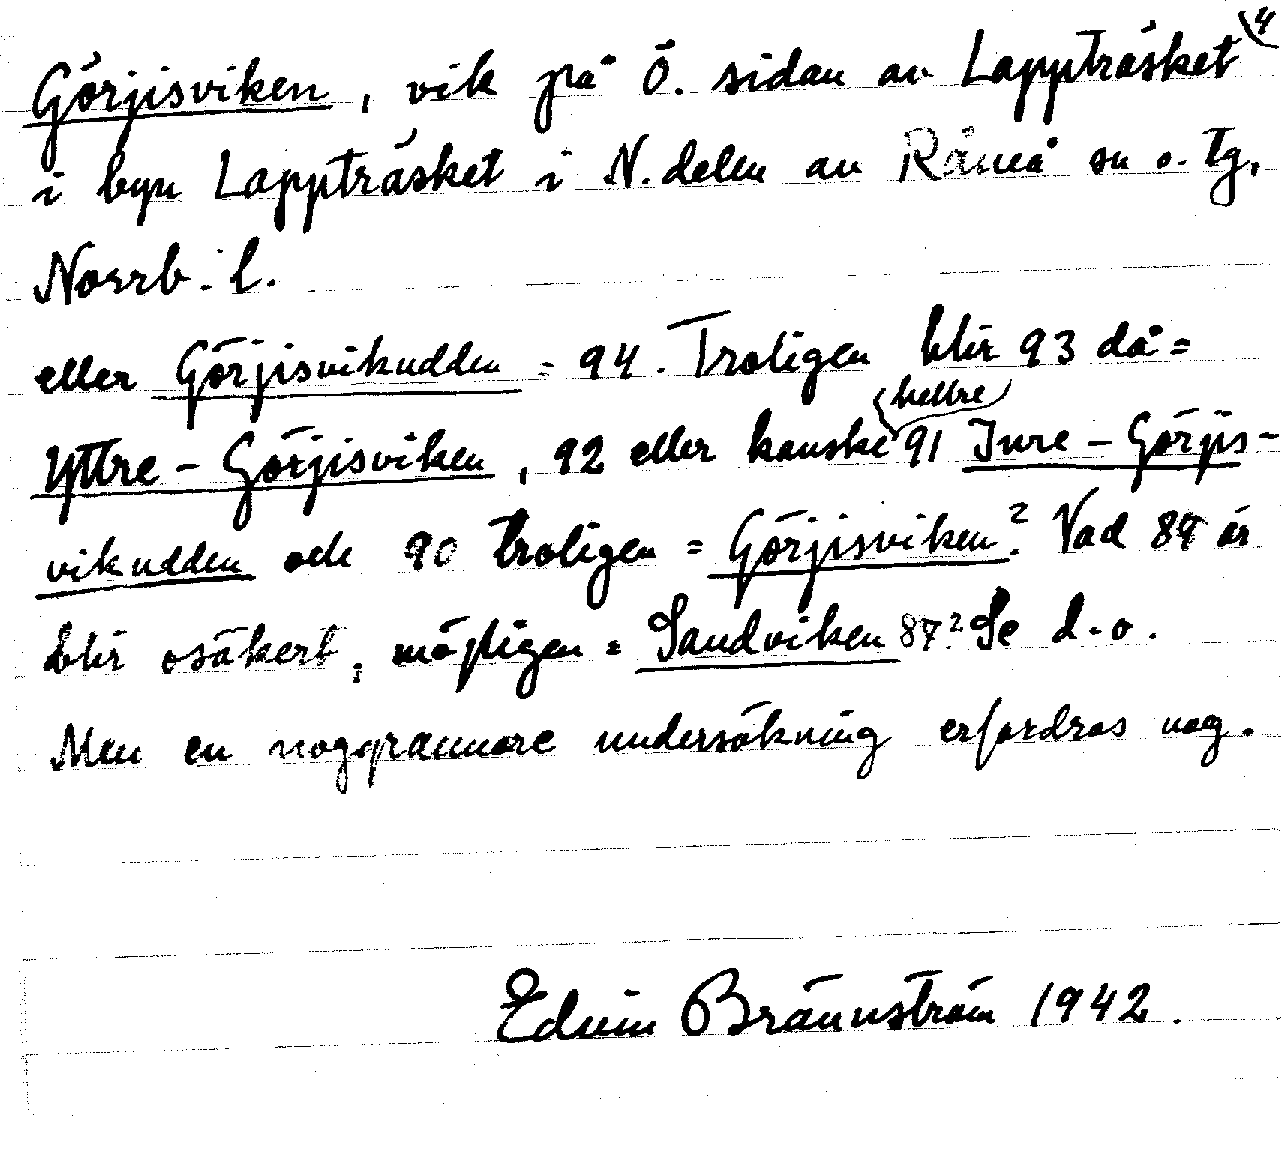 Görjisviken, vik på Ö. sidan av Lappträsket 4
i byn Lappträsket i N. delen av Råneå sn o. tg,
Norrb. l.
eller Görjisvikudden = 94. Troligen blir 93 då =
Yttre - Görjisviken, 92 eller kanske hellre 91 Inre - Görjis-
vikudden och 90 troligen = Görjisviken? Vad 89 är
blir osäkert, möjligen = Sandviken 87? Se d.o.
Men en noggrannare undersökning erfordras nog.
Edvin Brännström 1942.